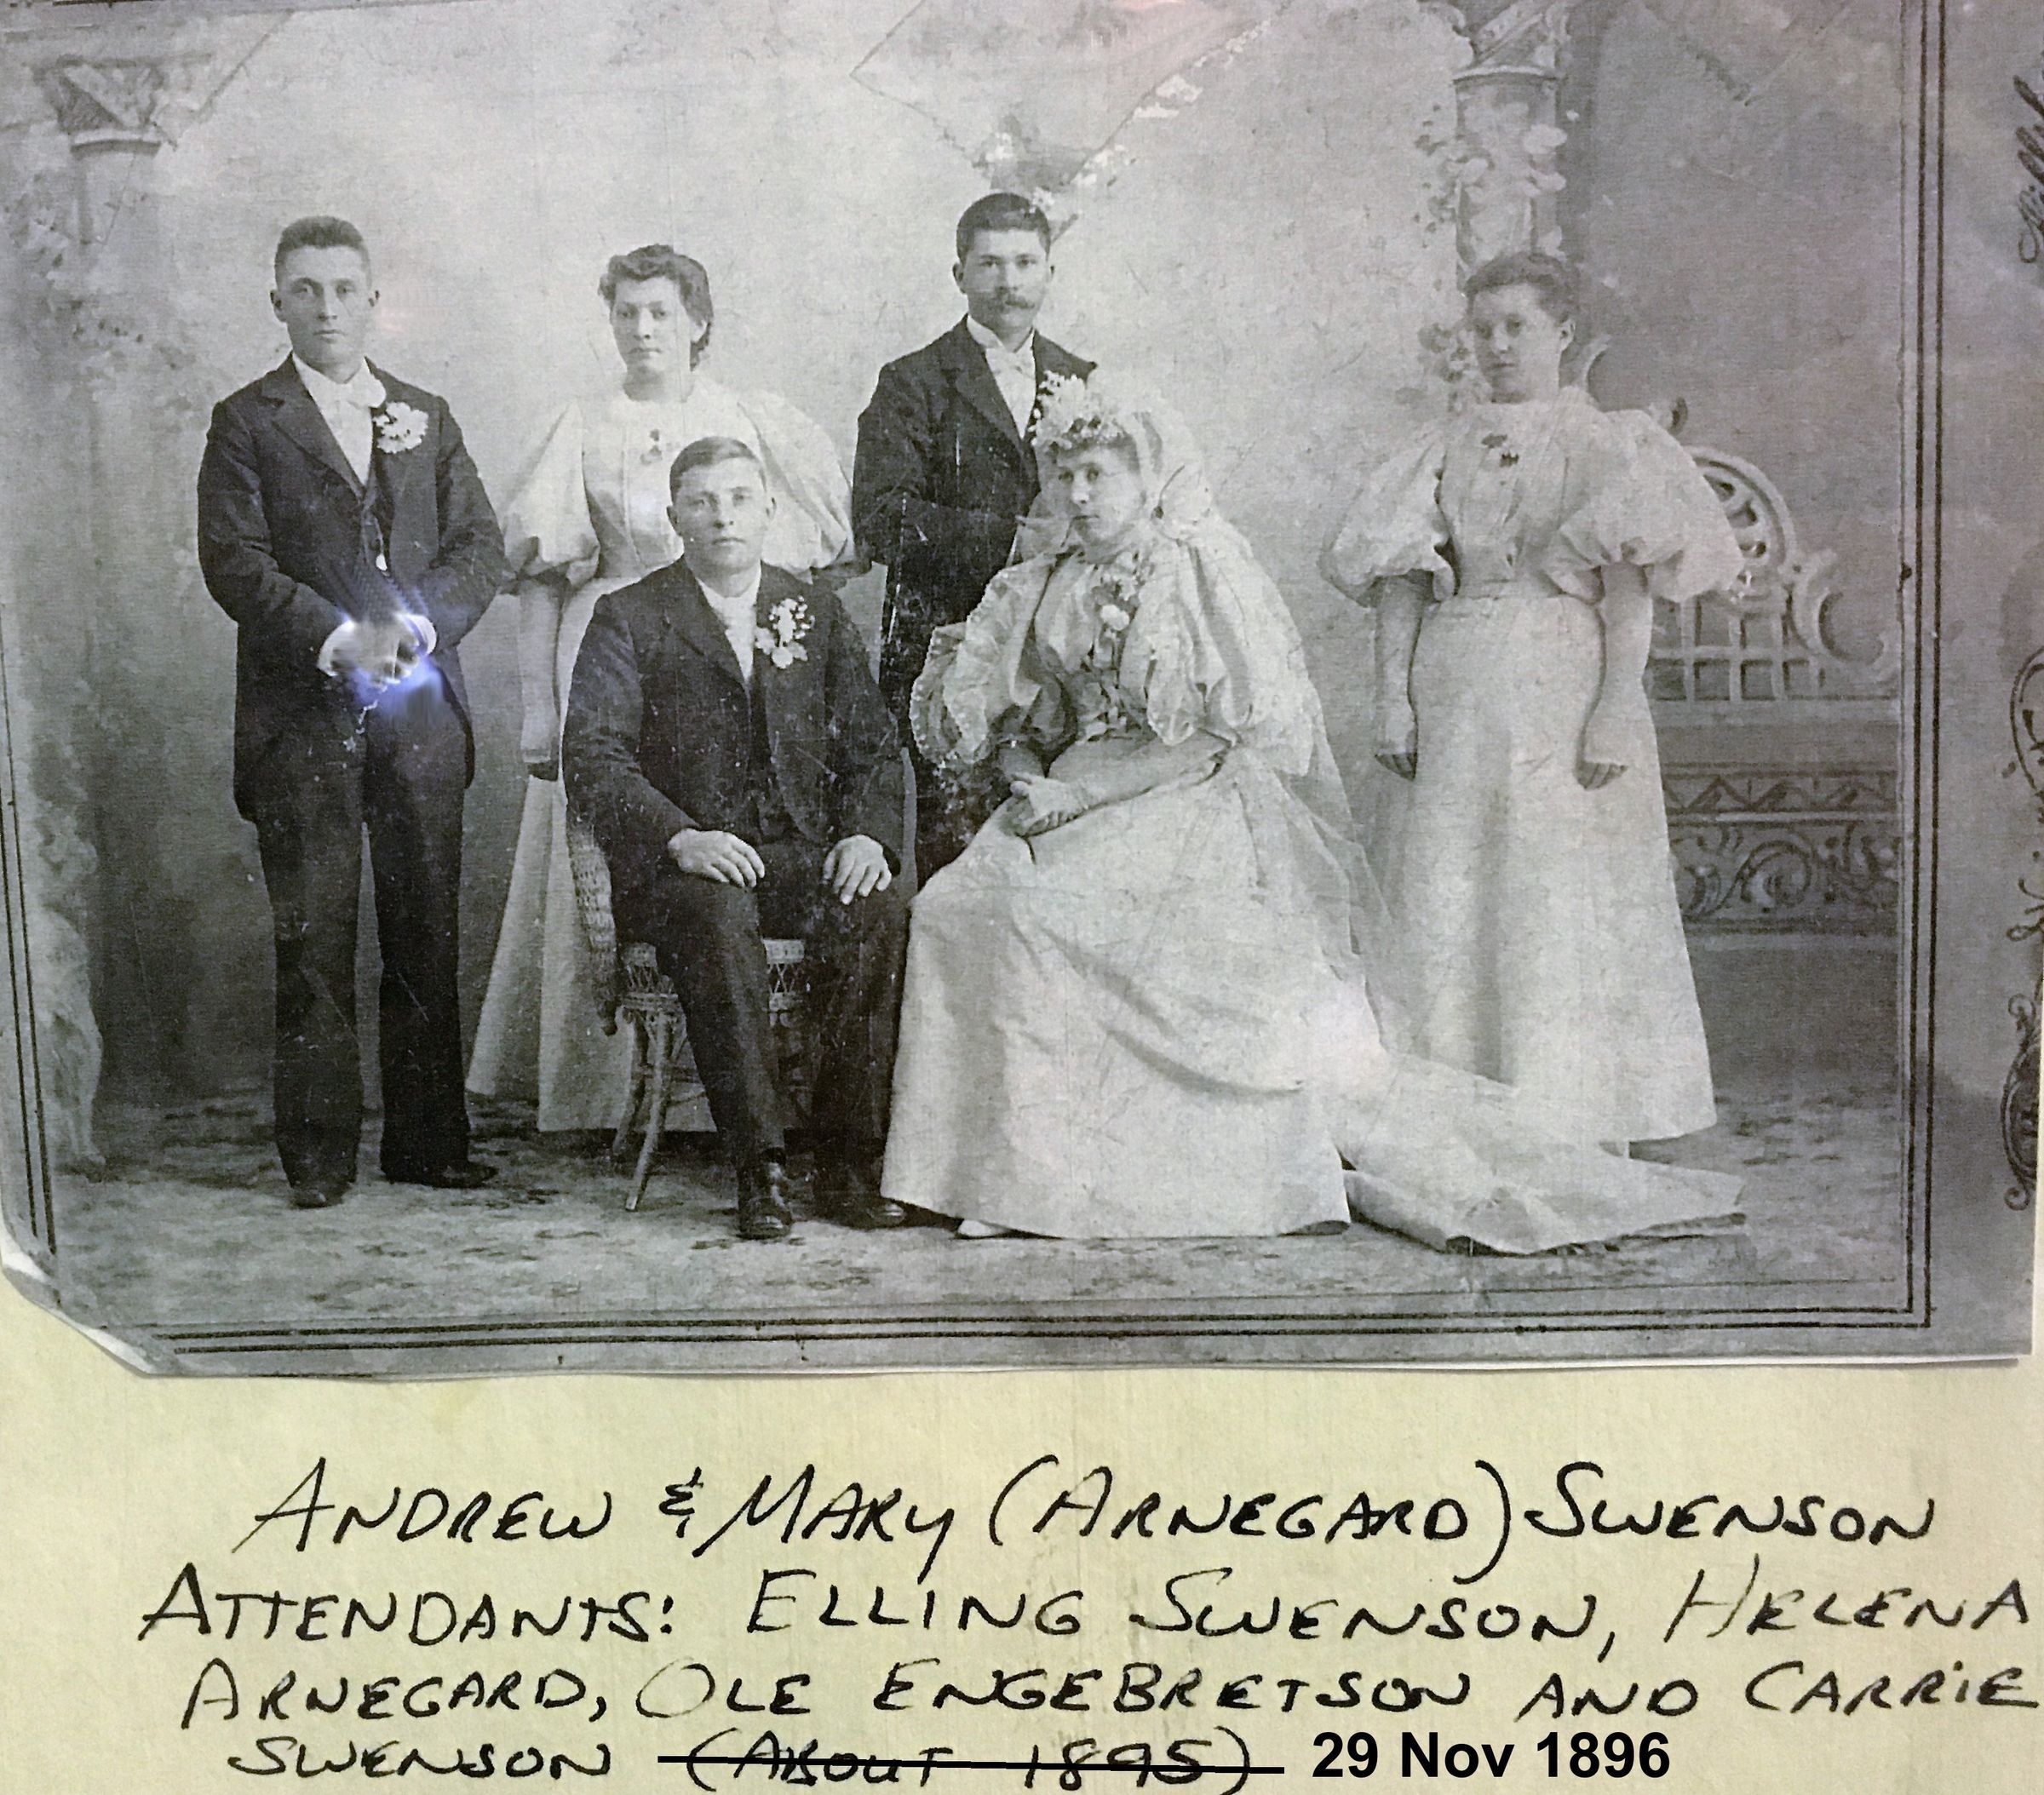 ANDREW & MARY (ARNEGARD) SWENSON
ATTENDANTS: ELLING SWENSON, HELENA
ARNEGARD, OLE ENGEBRETSON AND CARRIE
SWENSON (ABOUT 1895) 29 Nov 1896